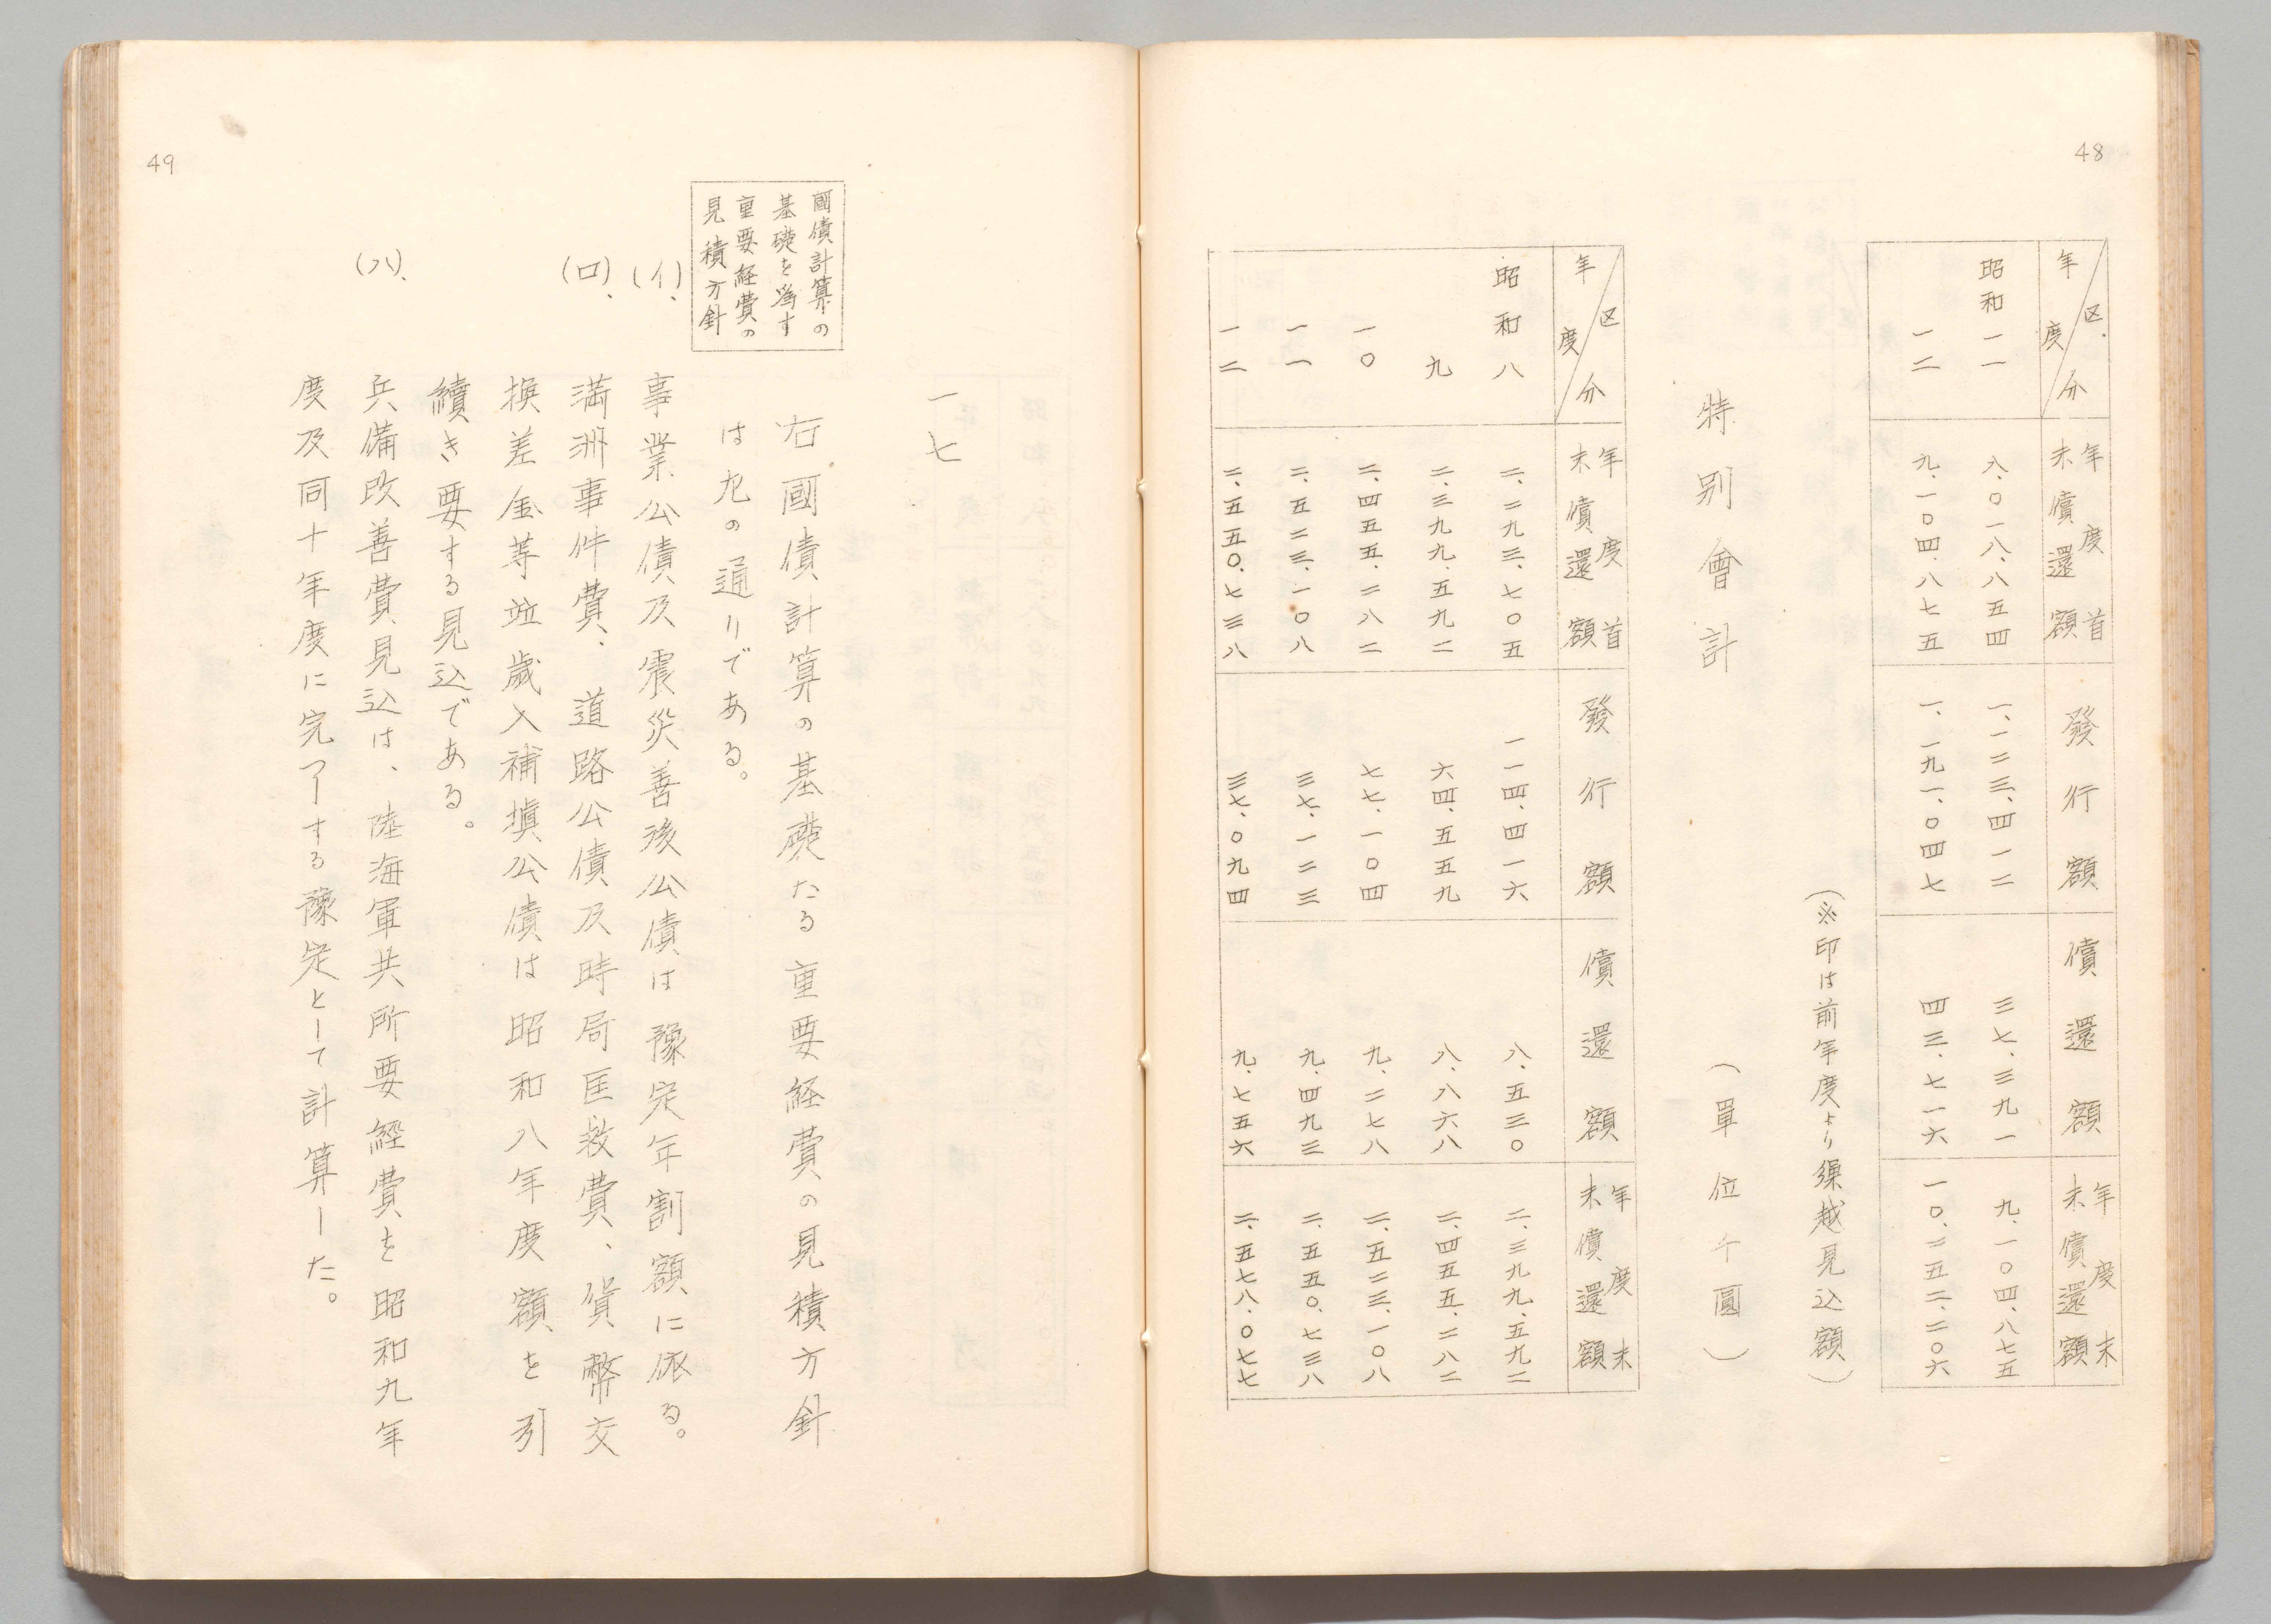 48
年度 区分 年度首未償還額 發行額 償還額 年度末未償還額
昭和一一 八、〇一八、八五四 一、一二三、四一二 三七、三九一 九、一〇四、八七五
一二 九、一〇四、八七五 一、一九一、〇四七 四三、七一六 一〇、二五二、二〇六
(※印は前年度より繰越見込額)
特別會計 (單位千圓)
年度 区分 年度首未償還額 發行額 償還額 年度末未償還額
昭和八 二、二九三、七〇五 一一四、四一六 八、五三〇 二、三九九、五九二
九 二、三九九、五九二 六四、五五九 八、八六八 二、四五五、二八二
一〇 二、四五五、二八二 七七、一〇四 九、二七八 二、五二三、一〇八
一一 二、五二三、一〇八 三七、一二三 九、四九三 二、五五〇、七三八
一二 二、五五〇、七三八 三七、〇九四 九、七五六 二、五七八、〇七七
49
一七
國債計算の
基礎を爲す
重要経費の
見積方針
右國債計算の基礎たる重要経費の見積方針
は九の通りである。
(イ)、事業公債及震災善後公債は豫定年割額に依る。
(ロ)、満洲事件費、道路公債及時局匡救費、貨幣交
換差金等竝歳入補塡公債は昭和八年度額を引
續き要する見込である。
(ハ)、兵備改善費見込は、陸海軍共所要經費を昭和九年
度及同十年度に完了する豫定として計算した。